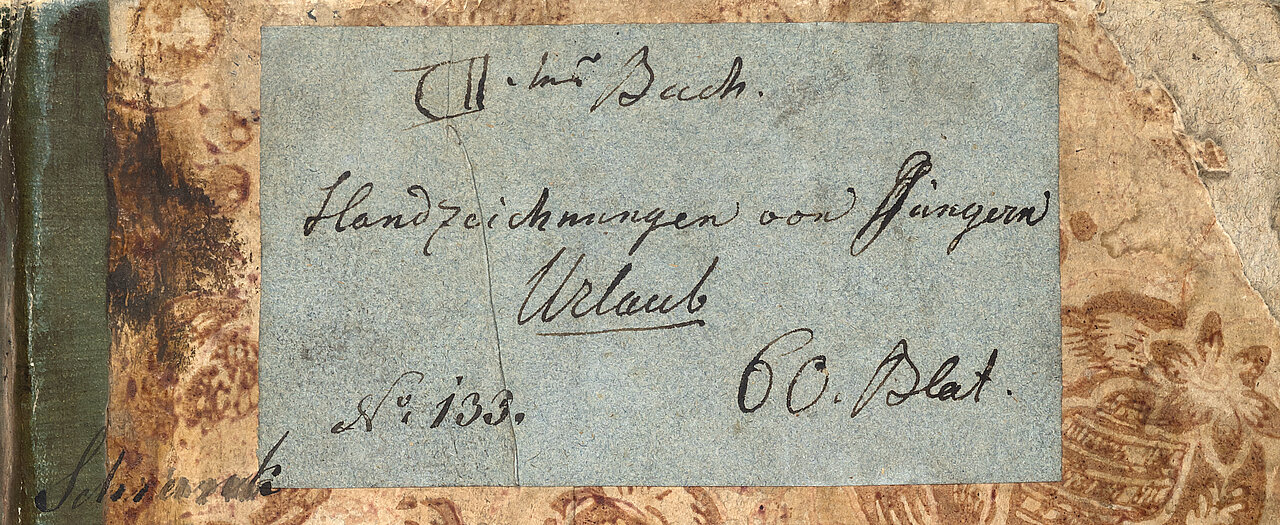 II.tes Buch.
Handzeichnungen von Jüngern
Urlaub
60. Blat.
No. 133.